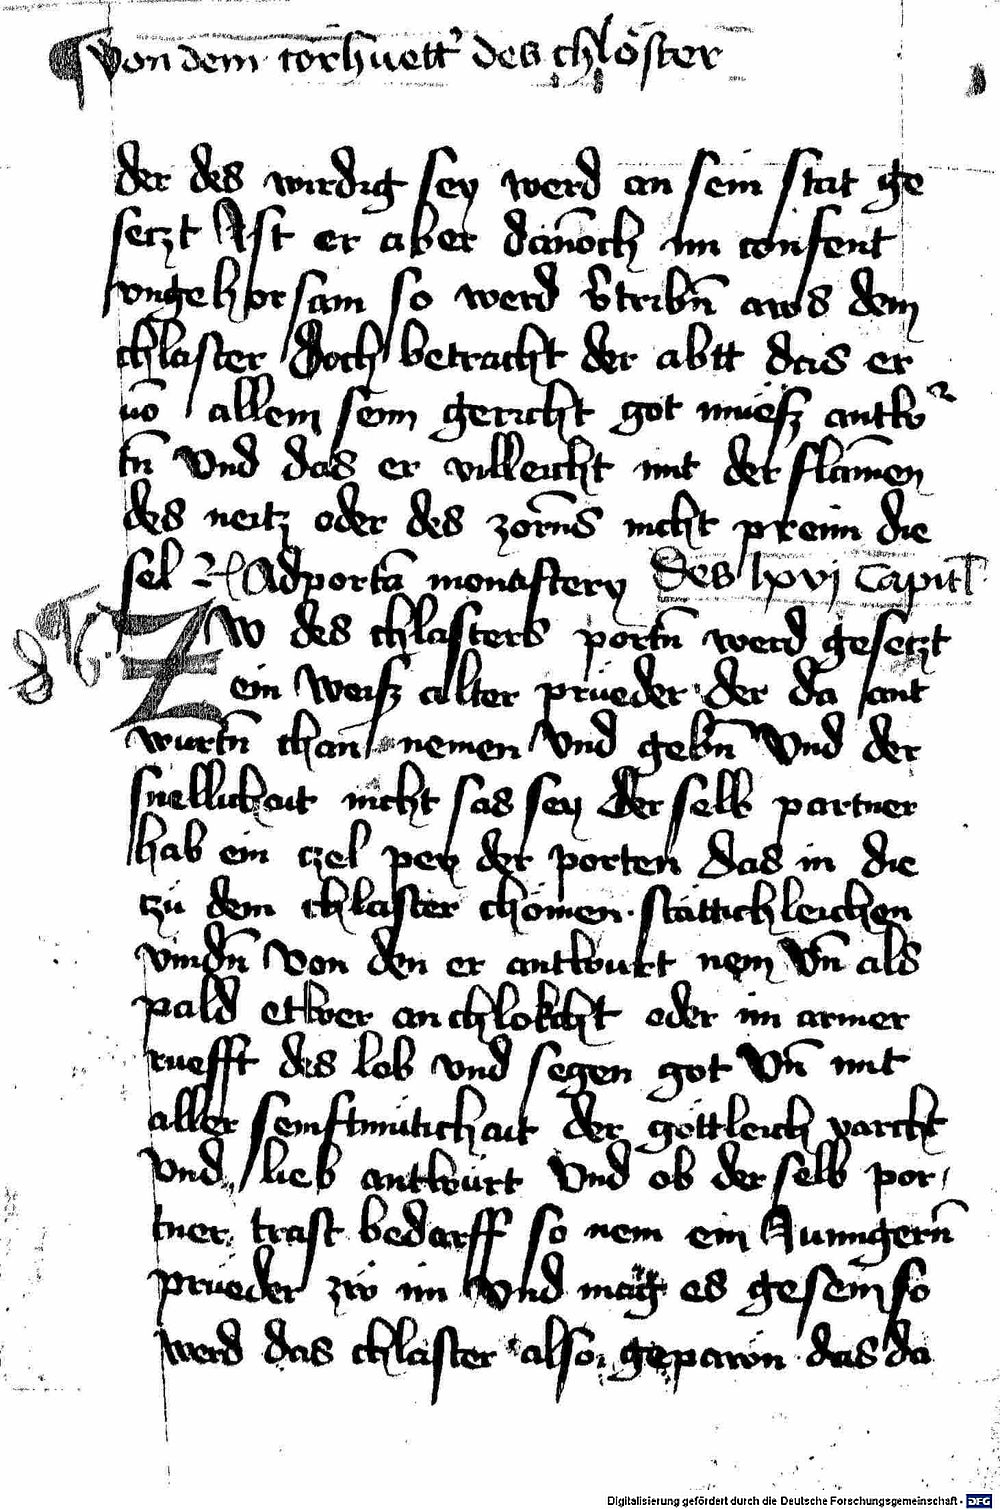 Von dem torhuett' des chlöster
der des wirdig sey werd an sein stat ge
setzt Ist er aber dan̄och im consent
vngehorsam so werd v̄tribn̄ aws dem
chlaster Doch betracht der abtt das er
uō allem seim gericht got muesz antw
tn̄ Vnd das er villeicht mit der flam̄en
des neitz oder des zorns nicht prenn die
sel Ad portā monastery Des lxvj Capitl
ZW des chlasters portn̄ werd gesetzt
ein weisz alter prueder der da ant
wurtn̄ chan nemen Vnd gebn̄ Vnd der
snellichait nicht las sey Der selb partner
hab ein tzel pey der porten das in die
tzu dem chlaster chömen stättichleichen
vindn̄ Von den er antwurt nem Vn̄ als
pald etwer an chlokcht oder im armer
ruefft des lob vnd segen got Vn̄ mit
aller semftmutichait der göttleich varcht
vnd lieb antwurt Vnd ob der selb por
tner trast bedarff so nem ein Junngern̄
prueder zw im Vnd mag es gesein so
werd das chlaster also gepawn das da
Digitalisierung gefördert durch die Deutsche Forschungsgemeinschaft - DFG